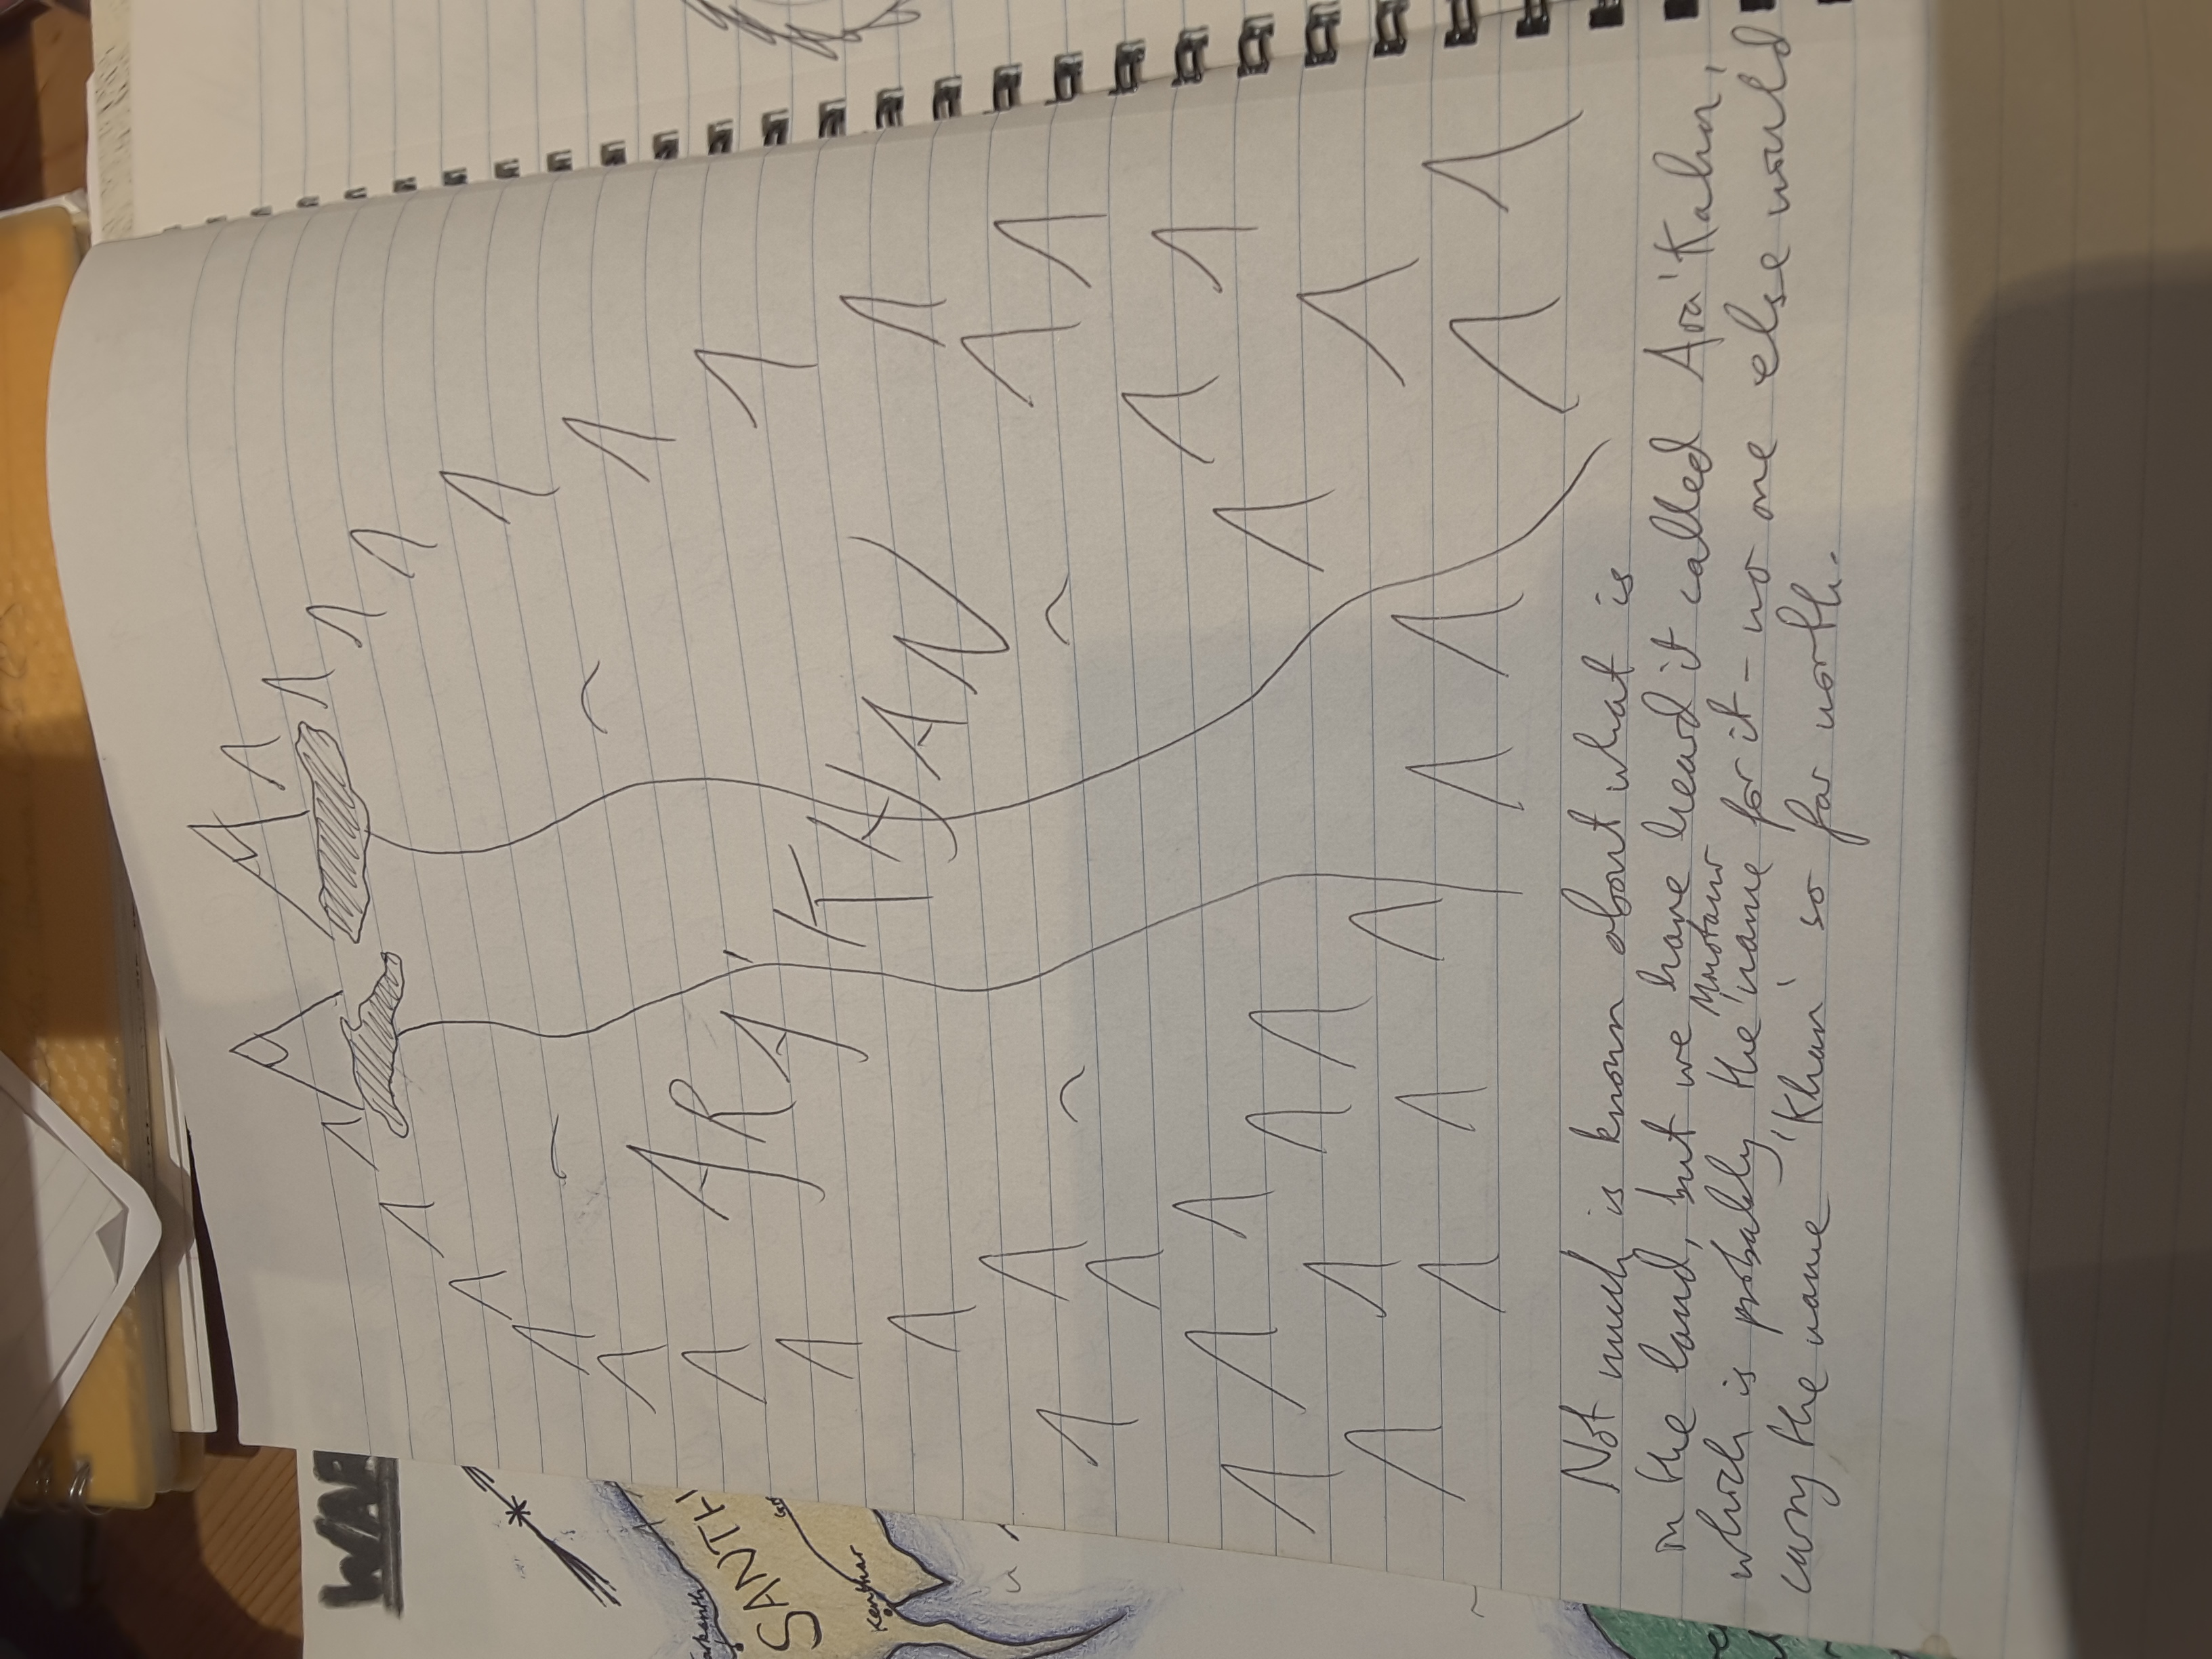 WAR
SANTH
Kenthar
ARA'
KHAN
Not much is known about what is
in the land, but we have heard it called Ara'Kahn,
Minotaur
which is probably the name for it - no one else would
carry the name 'Khan' so far north.